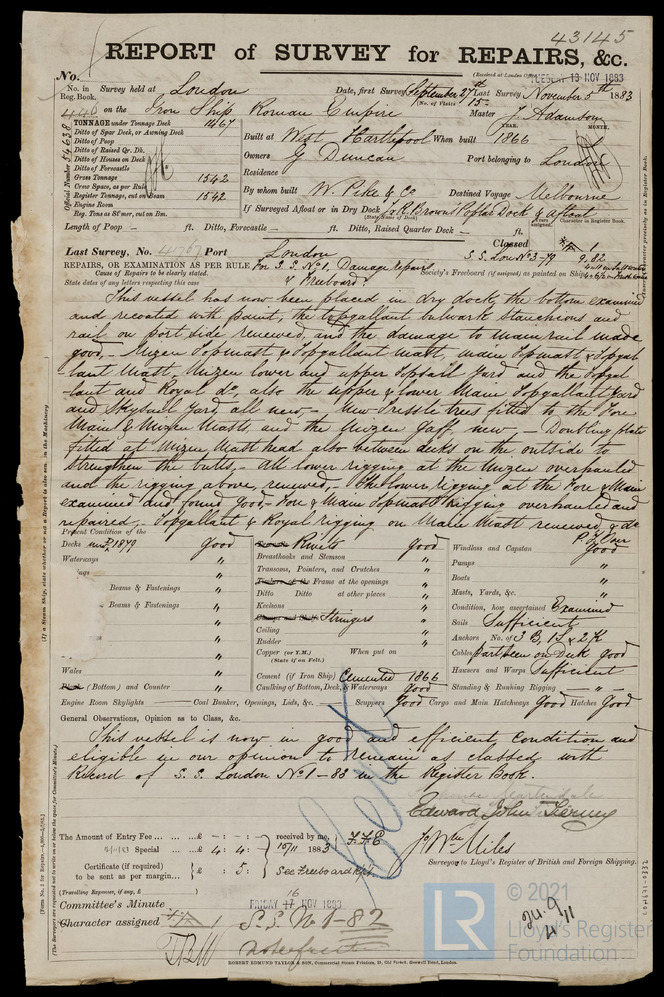 43145
REPORT of SURVEY for REPAIRS, &c.
(Received at London Office
TUESDAY 13 NOV 1883
No.
No. in Reg. Book.
Survey held at London
Date, first Survey September 27th Last Survey November 5th 1883
(No. of Visits 15)
440 on the Iron Ship Roman Empire
Master J. Adamson
TONNAGE under Tonnage Deck 1467
Ditto of Spar Deck, or Awning Deck
Ditto of Poop
Ditto of Raised Qr. Dk.
Ditto of Houses on Deck
Ditto of Forecastle
Gross Tonnage 1542
Crew Space, as per Rule
Register Tonnage, cut on Beam 1542
Engine Room
Reg. Tons as St'mer, cut on Bm.
Official Number 54638
Built at West Hartlepool When built 1866
YEAR. MONTH.
Owners G Duncan Port belonging to London
Residence
By whom built W. Pike & Co Destined Voyage Melbourne
If Surveyed Afloat or in Dry Dock J & R. Brown's Poplar Dock & afloat
(State name of Dock)
Length of Poop - ft. Ditto, Forecastle - ft. Ditto, Raised Quarter Deck - ft.
Last Survey, No. Port London
Classed
S.S. Lon No 3-79 9.82
REPAIRS, OR EXAMINATION AS PER RULE For S.S. No 1, Damage repairs & Freeboard.
Cause of Repairs to be clearly stated.
State dates of any letters respecting this case
Society's Freeboard (if assigned) as painted on Ship
This vessel has now been placed in dry dock, the bottom examined
and recoated with paint, the topgallant bulwark stancheons and
rail on port side renewed, and the damage to main rail made
good,- Mizen Topmast & Topgallant Mast, main Topmast & Topgal
-lant Mast, Mizen lower and upper Topsail Yard and the Topgal
-lant and Royal do, also the upper & lower Main Topgallant Yard
and Skysail Yard, all new,- New Tressle trees fitted to the Fore
Main & Mizen Masts, and the Mizen Gaff new,- Doubling plate
fitted at Mizen Mast head also between decks on the outside to
strengthen the butts,- All lower rigging at the Mizen overhauled
and the rigging above, renewed,- The lower rigging at the Fore & Main
examined and found good,- Fore & Main Topmast Rigging overhauled and
repaired,- Topgallant & Royal rigging on Main Mast renewed, &c
Present Condition of the
Decks 1879 Good
Waterways "
Beams & Fastenings "
Beams & Fastenings "
Wales "
(Bottom) and Counter "
Rivets Good
Breasthooks and Stemson "
Transoms, Pointers, and Crutches "
Timbers of the Frame at the openings "
Ditto Ditto at other places "
Keelsons "
Stringers "
Ceiling "
Rudder "
Copper (or Y.M.) When put on
(State if on Felt.)
Cement (if Iron Ship) Cemented 1866
Caulking of Bottom, Deck, & Waterways Good
Windlass and Capstan Good
Pumps "
Boats "
Masts, Yards, &c. "
Condition, how ascertained Examined
Sails Sufficient
Anchors No. of 3 B, 1 S, & 2 K
Cables part seen on Deck good
Hawsers and Warps Sufficient
Standing & Running Rigging - " -
Engine Room Skylights — Coal Bunker, Openings, Lids, &c. — Scuppers Good Cargo and Main Hatchways Good Hatches Good
General Observations, Opinion as to Class, &c.
This vessel is now in good and efficient condition and
eligible in our opinion to remain as classed with
Record of S.S. London No 1-83 in the Register Book.
Edward John Tierney
Jos Wm Miles
Surveyor to Lloyd's Register of British and Foreign Shipping.
The Amount of Entry Fee ... £ - : - : - received by me,
Special ... £ 4 : 4 : - 10/11 1883
Certificate (if required) to be sent as per margin... £ : 5 : See Freeboard Rpt.
(Travelling Expenses, if any, £ )
Committee's Minute FRIDAY 16 NOV 1883
Character assigned S.S. No 1-82
ROBERT EDMUND TAYLOR & SON, Commercial Steam Printers, 19, Old Street, Goswell Road, London.
LR
© 2021
Lloyd's Register
Foundation